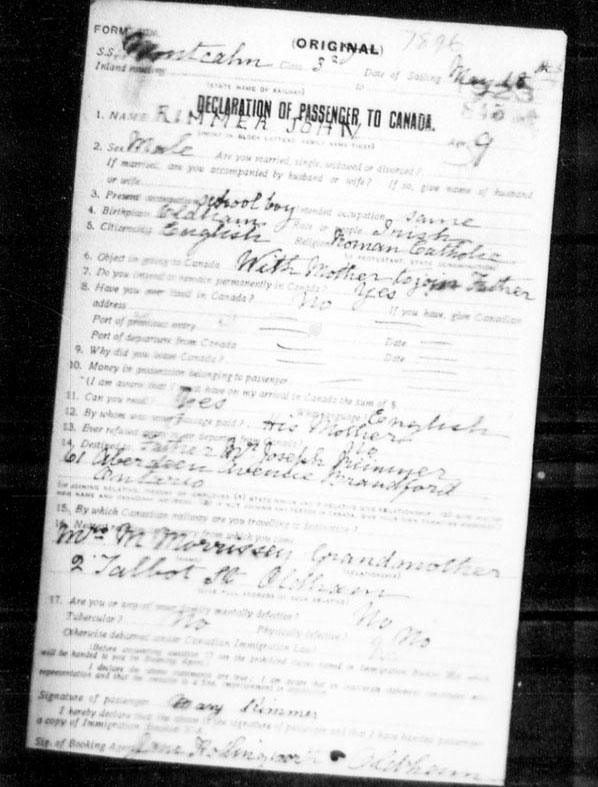 FORM 30A.
(ORIGINAL)
7896
S.S. Montcalm Class 3rd Date of Sailing May
Inland routing to
(STATE NAME OF RAILWAY)
DECLARATION OF PASSENGER TO CANADA.
1. NAME RIMMER JOHN Age 9
(PRINT IN BLOCK LETTERS, FAMILY NAME FIRST)
2. Sex Male Are you married, single, widowed or divorced?
If married, are you accompanied by husband or wife? If so, give name of husband
or wife
3. Present occupation school boy Intended occupation same
4. Birthplace Oldham Race or people Irish
5. Citizenship English Religion Roman Catholic
6. Object in going to Canada With Mother to join Father
7. Do you intend to remain permanently in Canada? Yes
8. Have you ever lived in Canada? No If you have, give Canadian
address
Port of previous entry Date
Port of departure from Canada Date
9. Why did you leave Canada?
10. Money in possession belonging to passenger
(I am aware that I must have on my arrival in Canada the sum of $
11. Can you read? Yes What language? English
12. By whom was your passage paid? His Mother
13. Ever refused entry to or deported from Canada? No
14. Destined to Father Mr Joseph Rimmer
61 Aberdeen Avenue Brandford
Ontario
15. By which Canadian railway are you travelling to destination?
Mrs M Morrissey Grandmother
(RELATIONSHIP)
2 Talbot St Oldham
(GIVE FULL ADDRESS OF SUCH RELATIVE)
17. Are you or any of your family mentally defective? No
Tubercular? No Physically defective? No
Otherwise debarred under Canadian Immigration Law?
Signature of passenger Mary Rimmer
I hereby declare that the above is the signature of passenger and that I have handed passenger
a copy of Immigration
Sig. of Booking Agent Oldham